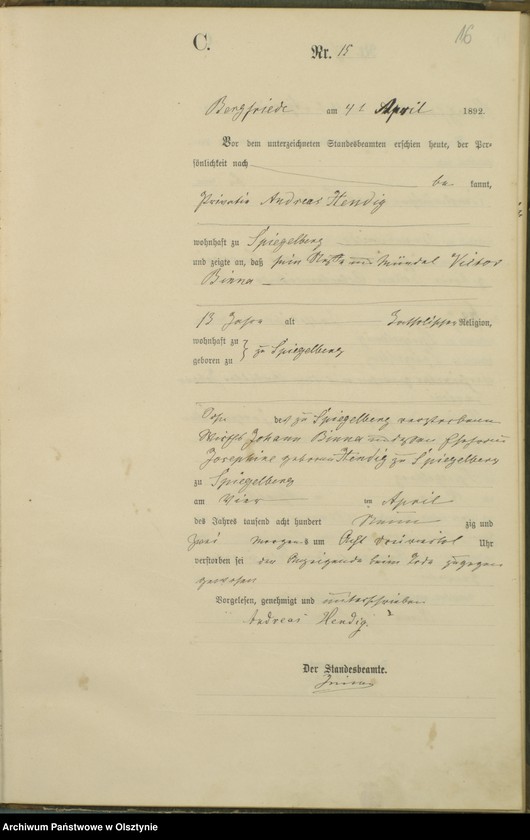 16
C.
Nr. 15
Bergfriede am 4 t April 1892.
Vor dem unterzeichneten Standesbeamten erschien heute, der Per=
sönlichkeit nach
be kannt,
Andreas Hendig
wohnhaft zu Spiegelberg
und zeigte an, daß sein und Mündel Victor
Binna
13 Jahre alt katholischer Religion,
wohnhaft zu
geboren zu } zu Spiegelberg
Sohn des zu Spiegelberg verstorbenen
Wirths Johann Binna und dessen Ehefrau
Josephine geborene Hendig zu Spiegelberg
zu Spiegelberg
am Vier ten April
des Jahres tausend acht hundert neun zig und
zwei morgens um Acht dreiviertel Uhr
verstorben sei der Anzeigende beim Tode zugegen
gewesen
Vorgelesen, genehmigt und unterschrieben
Andreas Hendig.
Der Standesbeamte.
Archiwum Państwowe w Olsztynie